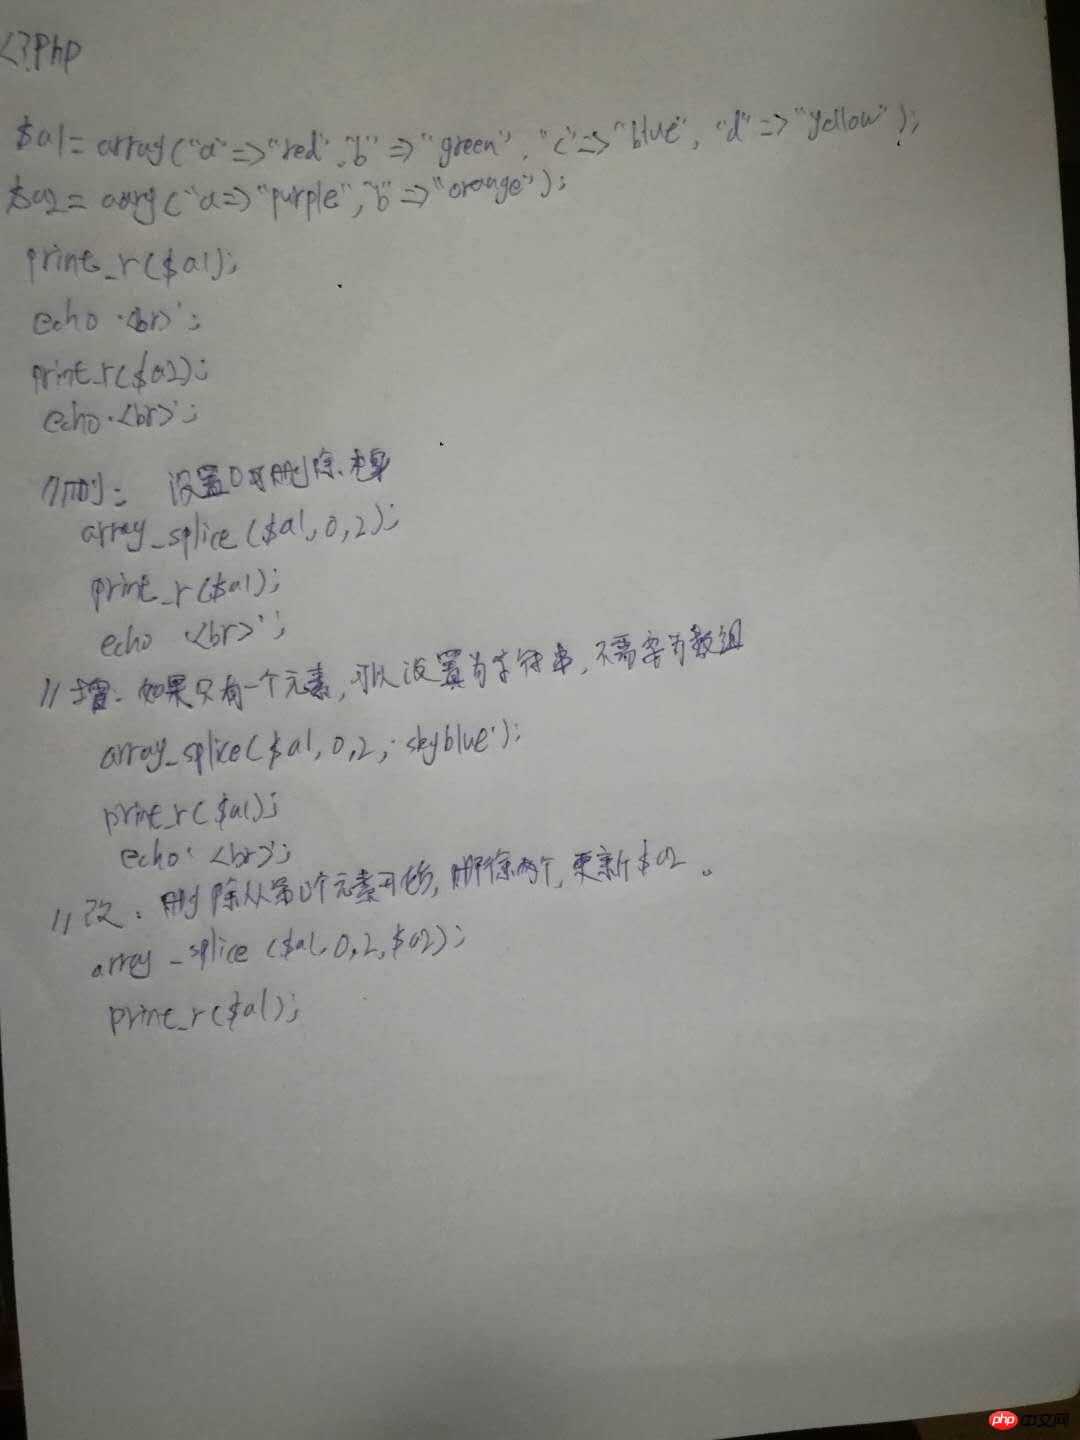 <?Php
$a1= array("a"=>"red","b"=>"green","c"=>"blue","d"=>"yellow");
$a2= array("a=>"purple","b"=>"orange");
print_r($a1);
echo '<br>';
print_r($a2);
echo '<br>';
//删: 设置0可删除
array_splice($a1,0,2);
print_r($a1);
echo '<br>';
//增: 如果只有一个元素,可以设置为字符串,不需要为数组
array_splice($a1,0,2,'skyblue');
print_r($a1);
echo '<br>';
//改: 删除从第0个元素开始,删除两个,更新$a2。
array_splice($a1,0,2,$a2);
print_r($a1);
php 中文网